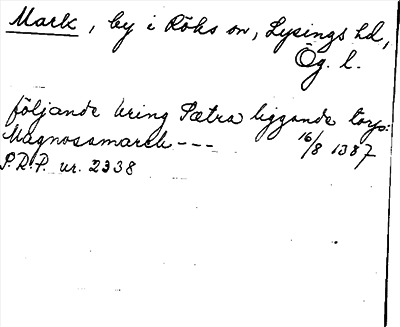 Mark, by i Röks sn, Lysings hd,
Ög. l.
följande kring Sætra liggande torp:
Magnossmarch --- 16/8 1387
S.R.P. nr. 2338